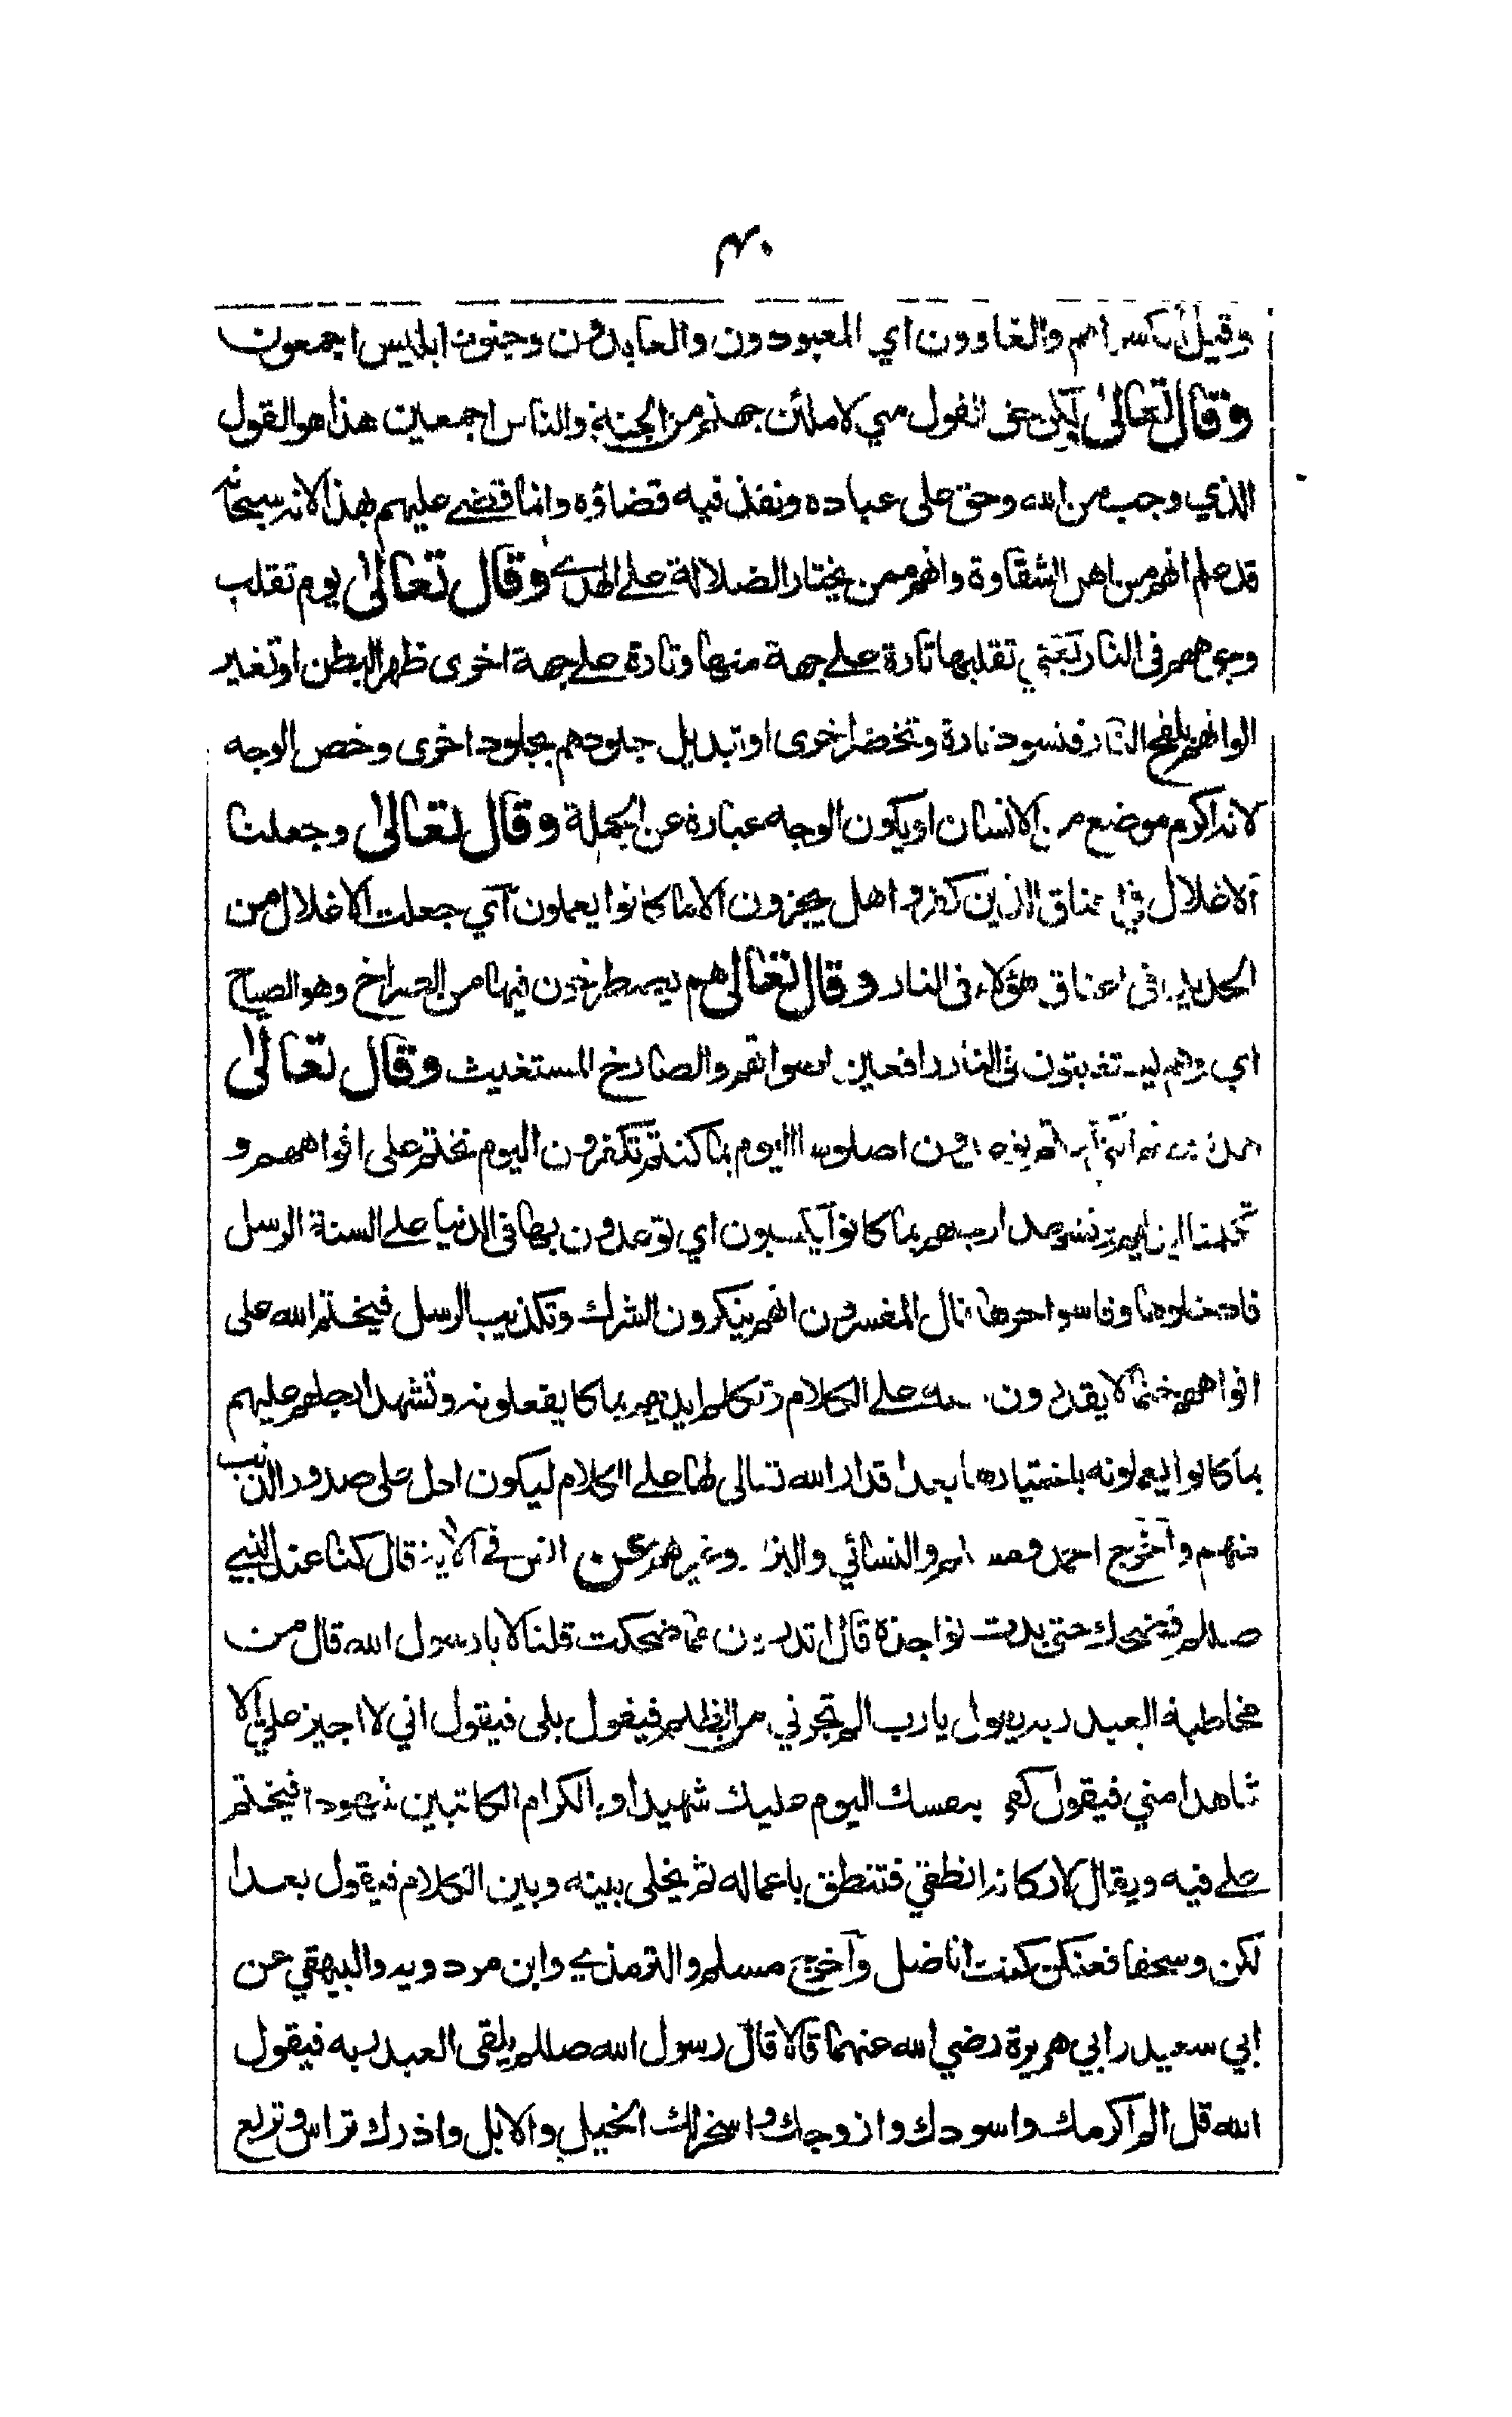 ۴۰
وقيل والغاوون اي المعبودون والعابدون وجنود ابليس اجمعون
وقال تعالى لكن حق القول مني لاملئن جهنم من الجنة والناس اجمعين هذا هو القول
الذي وجب من الله وحق على عباده ونفذ فيه قضاؤه وانما قضى عليهم بهذا لانه سبحانه
قد علم انهم من اهل الشقاوة وانهم ممن يختار الضلالة على الهدى وقال تعالى يوم تقلب
وجوههم في النار تقلبها تارة على جهة منها وتارة على جهة اخرى ظهر البطن او تغير
الوانهم بلفح النار فتسود تارة وتخضر اخرى او تبديل جلودهم بجلود اخرى وخص الوجه
لانه اكرم موضع من الانسان او يكون الوجه عبارة عن الجملة وقال تعالى وجعلنا
الاغلال في اعناق الذين كفروا هل يجزون الا ما كانوا يعملون آي جعلت الاغلال من
الحديد في اعناق هؤلاء في النار وقال تعالى هم يصطرخون فيها من الصراخ وهو الصياح
اي وهم يستغيثون في النار رافعين اصواتهم والصارخ المستغيث وقال تعالى
اصلوها اليوم بما كنتم تكفرون اليوم نختم على افواههم و
تكلمنا ايديهم وتشهد ارجلهم بما كانوا يكسبون اي توعدون بها في الدنيا على السنة الرسل
فادخلوها وقاسوا حرها قال المفسرون انهم ينكرون الشرك وتكذيب الرسل فيختم الله على
افواههم ختما لا يقدرون معه على الكلام وتكلم ايديهم بما كا يفعلونه وتشهد ارجلهم عليهم
بما كانوا يعملونه باختيارها بعد اقدار الله تعالى لها على الكلام ليكون ادل على صدور الذنب
منهم وآخرج احمد ومسلم والنسائي والبزار وغيرهم عن انس في الآية قال كنا عند النبي
صللم فضحك حتى بدت نواجذه قال اتدرون مما ضحكت قلنا لا يا رسول الله قال من
مخاطبة العبد ربه يقول يا رب الم تجرني من الظلم فيقول بلى فيقول اني لا اجيز علي الا
شاهدا مني فيقول كفى بنفسك اليوم عليك شهيدا وبالكرام الكاتبين شهودا فيختم
على فيه ويقال لاركانه انطقي فتنطق باعماله ثم يخلى بينه وبين الكلام فيقول بعدا
لكن وسحقا فعنكن كنت اناضل وآخرج مسلم والترمذي وابن مردويه والبيهقي عن
ابي سعيد وابي هريرة رضي الله عنهما قالا قال رسول الله صللم يلقى العبد ربه فيقول
الله قل الم اكرمك واسودك وازوجك واسخر لك الخيل والابل واذرك تراس وتربع